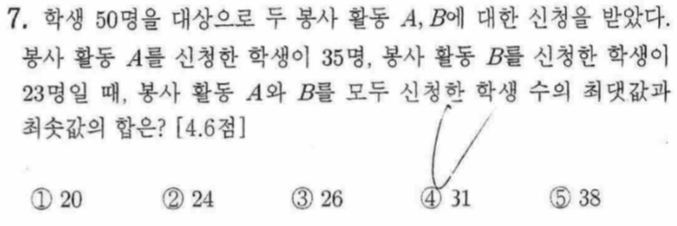 7. 학생 50명을 대상으로 두 봉사 활동 A, B에 대한 신청을 받았다.
봉사 활동 A를 신청한 학생이 35명, 봉사 활동 B를 신청한 학생이
23명일 때, 봉사 활동 A와 B를 모두 신청한 학생 수의 최댓값과
최솟값의 합은? [4.6점]
① 20 ② 24 ③ 26 ④ 31 ⑤ 38